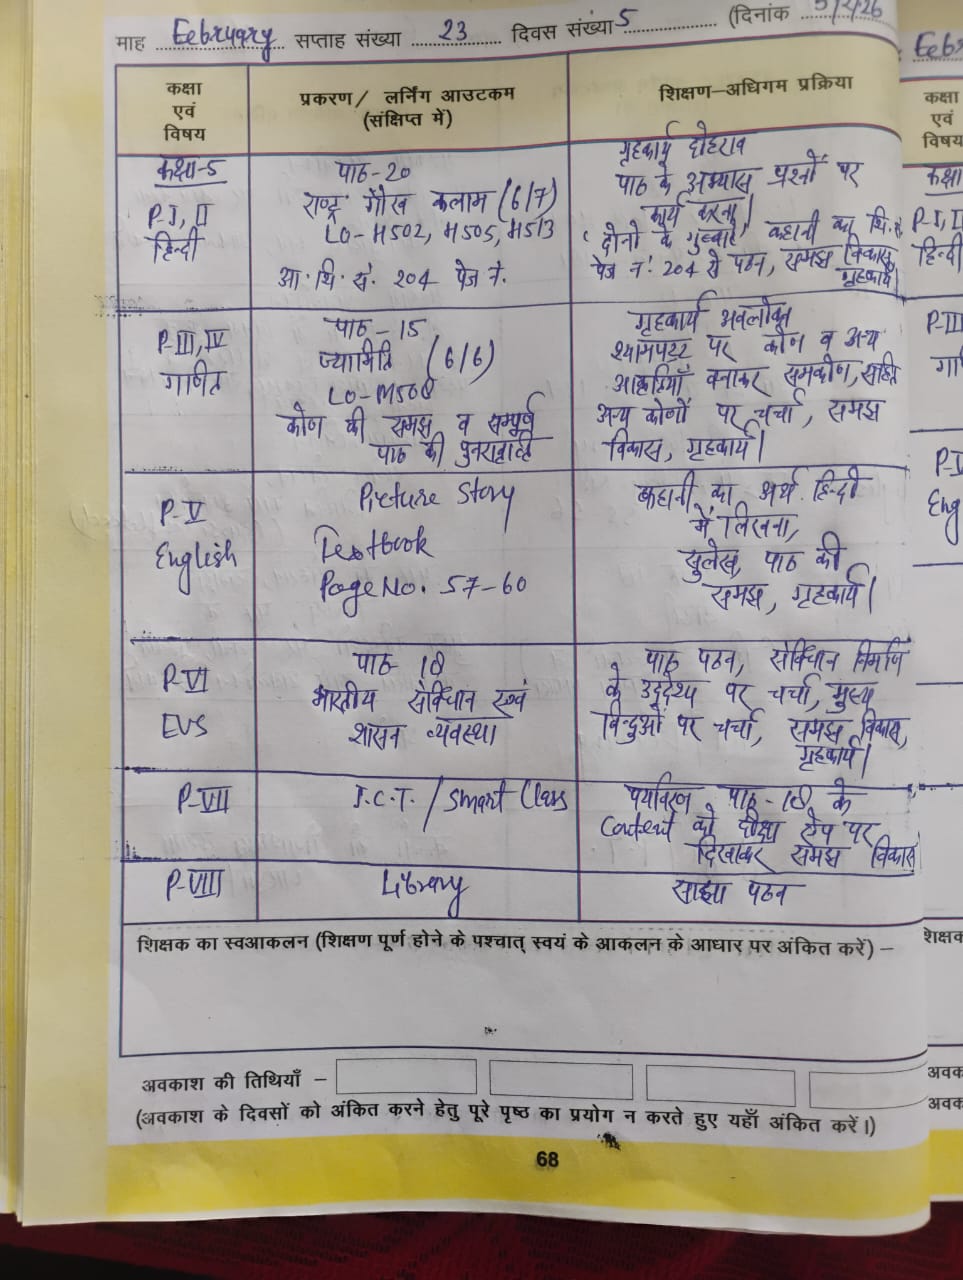 माह February सप्ताह संख्या 23 दिवस संख्या 5 (दिनांक 5/2/26
कक्षा एवं विषय
प्रकरण/ लर्निंग आउटकम (संक्षिप्त में)
शिक्षण–अधिगम प्रक्रिया
कक्षा-5
P-I, II
हिन्दी
पाठ-20
राष्ट्र गौरव कलाम (6/7)
LO-H502, H505, H513
आ. थि. सं. 204 पेज नं.
गृहकार्य दोहराव
पाठ के अभ्यास प्रश्नों पर
कार्य करना।
दोनों के गुब्बारे कहानी का थि. सं.
पेज नं. 204 से पठन, समझ विकास,
गृहकार्य।
P-III, IV
गणित
पाठ-15
ज्यामिति (6/6)
LO-M508
कोण की समझ व सम्पूर्ण
पाठ की पुनरावृत्ति
गृहकार्य अवलोकन
श्यामपट्ट पर कोण व अन्य
आकृतियाँ बनाकर समकोण, सहित
अन्य कोणों पर चर्चा, समझ
विकास, गृहकार्य।
P-V
English
Picture Story
Textbook
Page No. 57-60
कहानी का अर्थ हिन्दी
में लिखना,
सुलेख, पाठ की
समझ, गृहकार्य।
P-VI
EVS
पाठ-18
भारतीय संविधान एवं
शासन व्यवस्था
पाठ पठन, संविधान निर्माण
के उद्देश्य पर चर्चा, मुख्य
बिन्दुओं पर चर्चा, समझ विकास,
गृहकार्य।
P-VII
I.C.T. / Smart Class
पर्यावरण पाठ-18 के
Content को दीक्षा ऐप पर
दिखाकर समझ विकास
P-VIII
Library
साझा पठन
शिक्षक का स्वआकलन (शिक्षण पूर्ण होने के पश्चात् स्वयं के आकलन के आधार पर अंकित करें) –
अवकाश की तिथियाँ –
(अवकाश के दिवसों को अंकित करने हेतु पूरे पृष्ठ का प्रयोग न करते हुए यहाँ अंकित करें।)
68
कक्षा
एवं
विषय
कक्षा
P-I, II
हिन्दी
P-III
Eng
शिक्षक
अवक
अवक